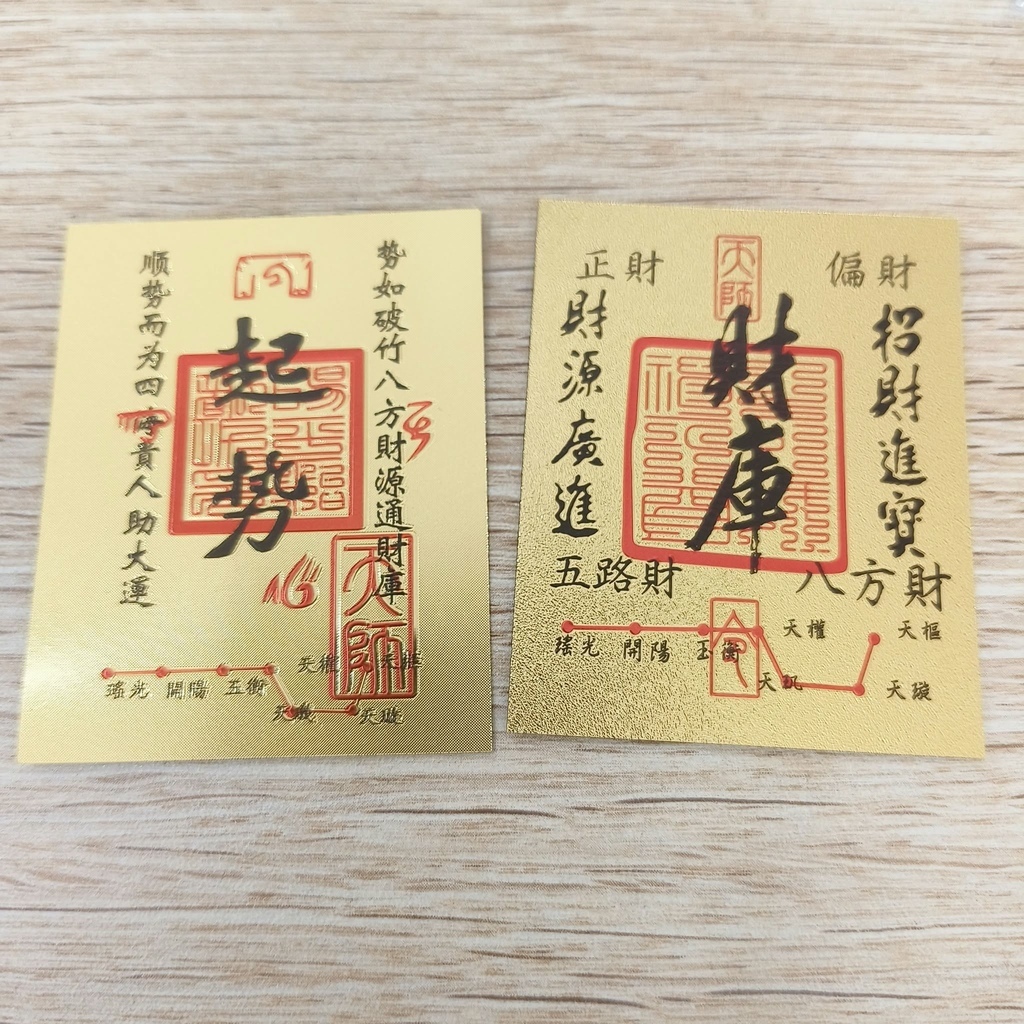 势如破竹八方財源通財庫
起势
顺势而为四海貴人助大運
天師
瑤光 開陽 玉衡 天權 天樞
天璣 天璇
天師
正財 偏財
招財進寶
財庫
財源廣進
五路財 八方財
瑤光 開陽 玉衡 天權 天樞
天璣 天璇